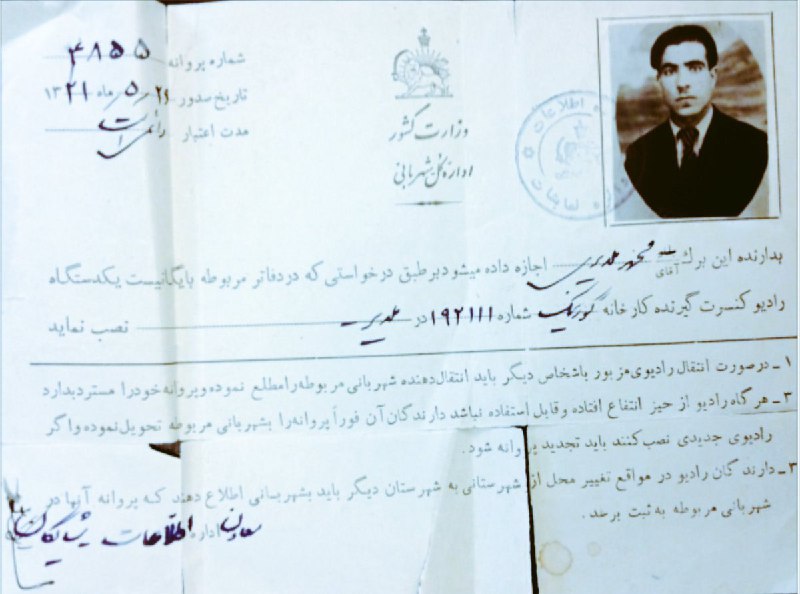 شماره پروانه ۴۸۵۵
تاریخ صدور ۲۶ ر ۵ ماه ۱۳۲۱
مدت اعتبار
وزارت کشور
اداره کل شهربانی
اداره اطلاعات
بدارنده این برگ آقای اجازه داده میشود برطبق درخواستی که در دفاتر مربوطه بایگانیست یکدستگاه
رادیو کنسرت گیرنده کارخانه شماره ۱۹۲۱۱۱ در نصب نماید
۱ ـ درصورت انتقال رادیوی مزبور باشخاص دیگر باید انتقال دهنده شهربانی مربوطه را مطلع نموده و پروانه خود را مسترد بدارد
۲ ـ هر گاه رادیو از حیز انتفاع افتاده و قابل استفاده نباشد دارندگان آن فوراً پروانه را بشهربانی مربوطه تحویل نموده و اگر
رادیوی جدیدی نصب کنند باید تجدید پروانه شود.
۳ ـ دارند گان رادیو در مواقع تغییر محل از شهرستانی به شهرستان دیگر باید بشهربانی اطلاع دهند که پروانه آنها در
شهربانی مربوطه به ثبت برسد.
معاون اداره اطلاعات